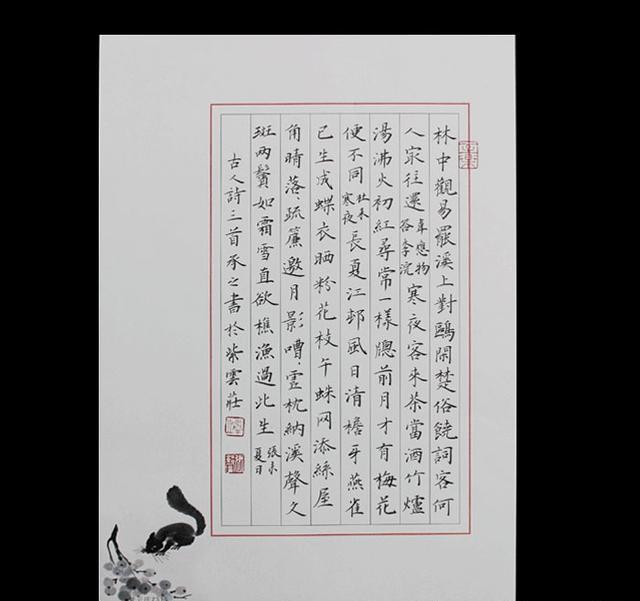 林中觀易罷溪上對鷗閑楚俗饒詞客何
人最往還韋應物答李浣寒夜客來茶當酒竹爐
湯沸火初紅尋常一樣牕前月才有梅花
便不同杜耒寒夜長夏江邨風日清檐牙燕雀
已生成蝶衣晒粉花枝午蛛网添絲屋
角晴落、疏簾邀月影嘈、虛枕納溪聲久
斑兩鬢如霜雪直欲樵漁過此生張耒夏日
古人詩三首承之書於紫雲莊